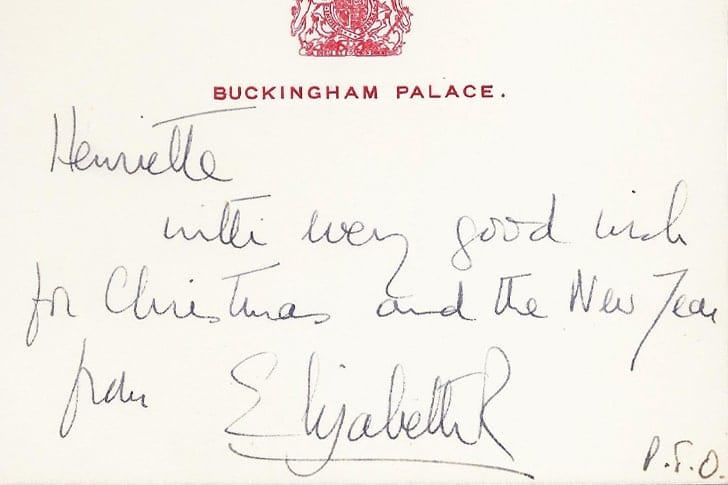 BUCKINGHAM PALACE.
Henriette
with every good wish
for Christmas and the New Year
from Elizabeth R
P.T.O.